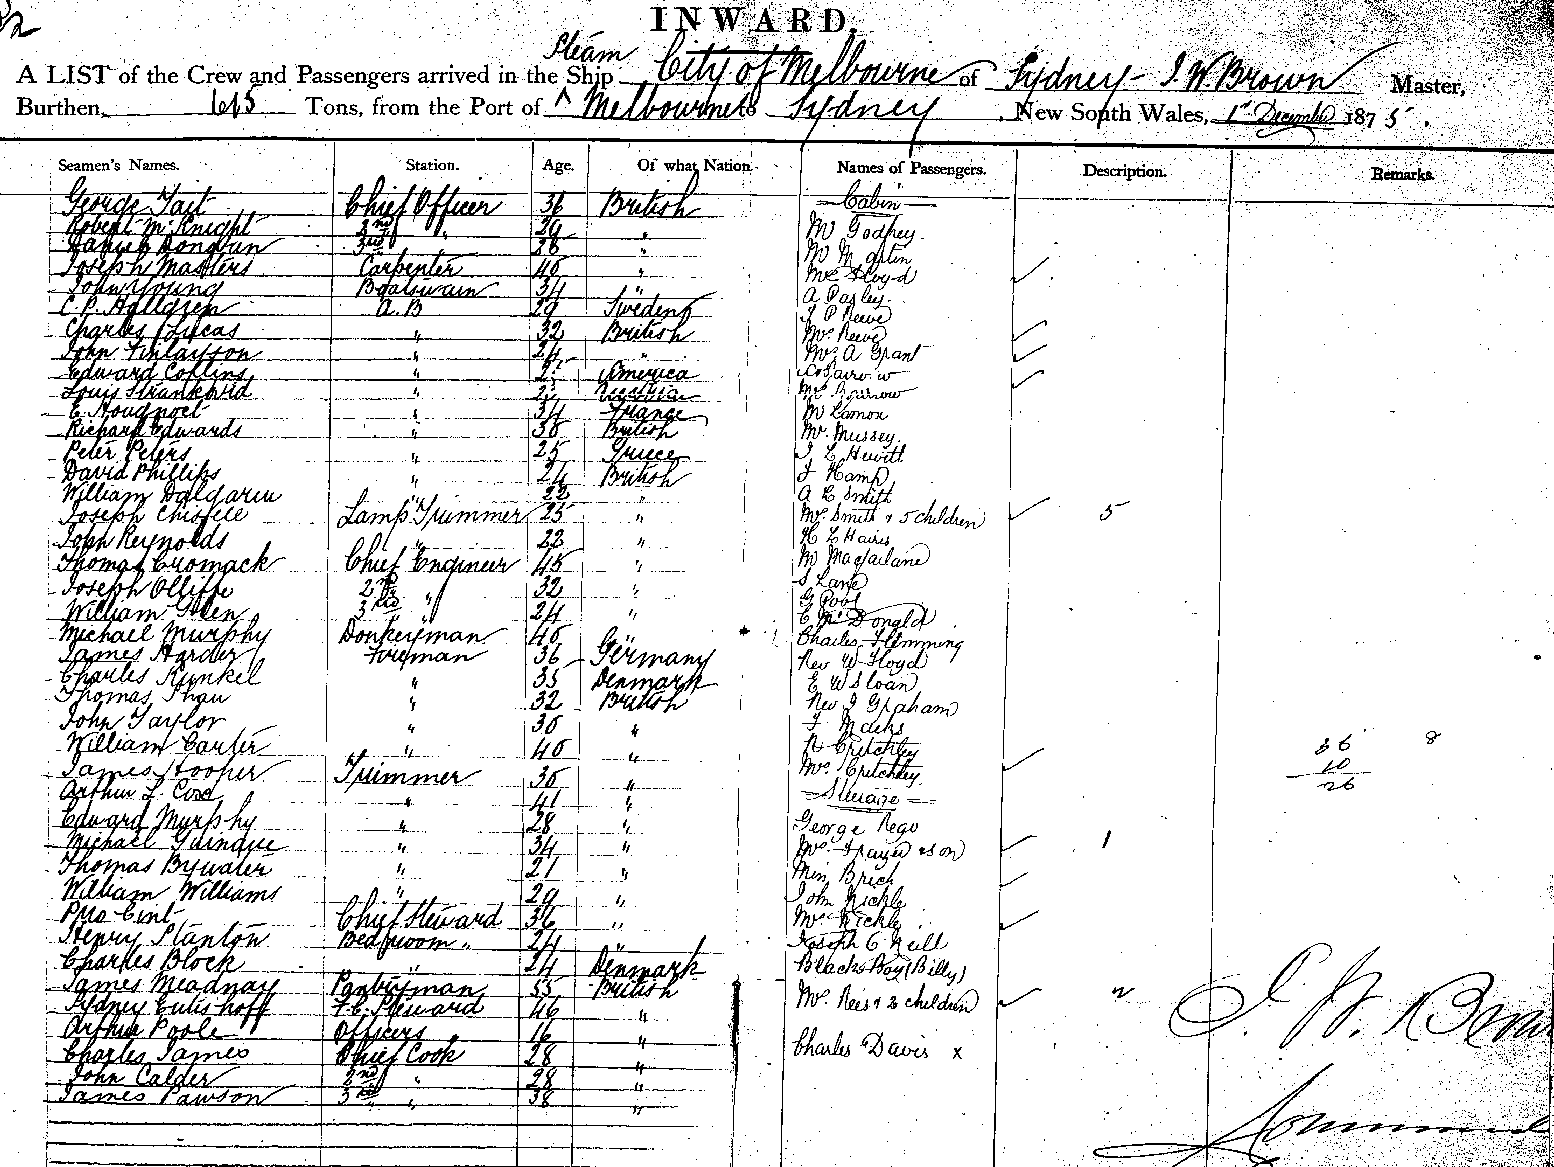 INWARD.
Steam
A LIST of the Crew and Passengers arrived in the Ship City of Melbourne of Sydney - J. W. Brown Master,
Burthen, 615 Tons, from the Port of ^ Melbourne to Sydney New South Wales, 1st December 1875.
Seamen's Names. Station. Age. Of what Nation. Names of Passengers. Description. Remarks.
George Tait Chief Officer 36 British Cabin
Robert McKnight 2nd " 29 " Mr Godfrey
Daniel Donovan 3rd 28 "
Joseph Masters Carpenter 40 " Mrs Floyd
John Young Boatswain 34 " A Pasley
C. P. Hallgren A.B 29 Sweden J P Reeve
Charles Lucas " 32 British Mrs Reeve
John Finlayson " 24 " Mrs A Grant
Edward Collins " America
Louis " Austrian Mrs
" 34 France Mr Lamon
Richard Edwards " 30 British Mr. Mussey
Peter Peters " 25 Greece J L Hewitt
David Phillips " 24 British J Kamp
William Dalgarin " 22 " A E Smith
Joseph Lamp Trimmer 25 " Mrs Smith & 5 children 5
John Reynolds " 22 " H L Hains
Thomas Cromack Chief Engineer 45 " Mr Macfarlane
Joseph Olliffe 2nd " 32 " S Lane
William Glen 3rd " 24 " G Pool
Michael Murphy Donkeyman 40 " E McDonald
James Harder Fireman 36 Germany Charles Flemming
Charles Kunkel " 35 Denmark Rev W Floyd
Thomas Shau " 32 British E W Sloan
John Taylor " 30 " Rev J Graham
William Carter " 40 " F Macks
James Hooper Trimmer 30 " R Critchley 36 8
Arthur L. Cox " 41 " Mrs Critchley 10
Edward Murphy " 28 " Steerage 26
Michael " 34 " George Rego
Thomas Bywater " 21 " Mrs Frayer & son 1
William Williams " 29 " Miss Brick
Chief Steward 36 " John Nickle
Henry Stanton Bedroom " 24 " Mrs Nickle
Charles Block " 24 Denmark Joseph C Neill
James Meadnay Pantryman 55 British Blacks Boy (Billy)
Sydney F.C. Steward 46 " Mrs Rees & 2 children 2
Arthur Poole Officers 16 "
Charles James Chief Cook 28 " Charles Davis x
John Calder 2nd " 28 "
James Pawson 3rd " 38 "
J. W. Brown